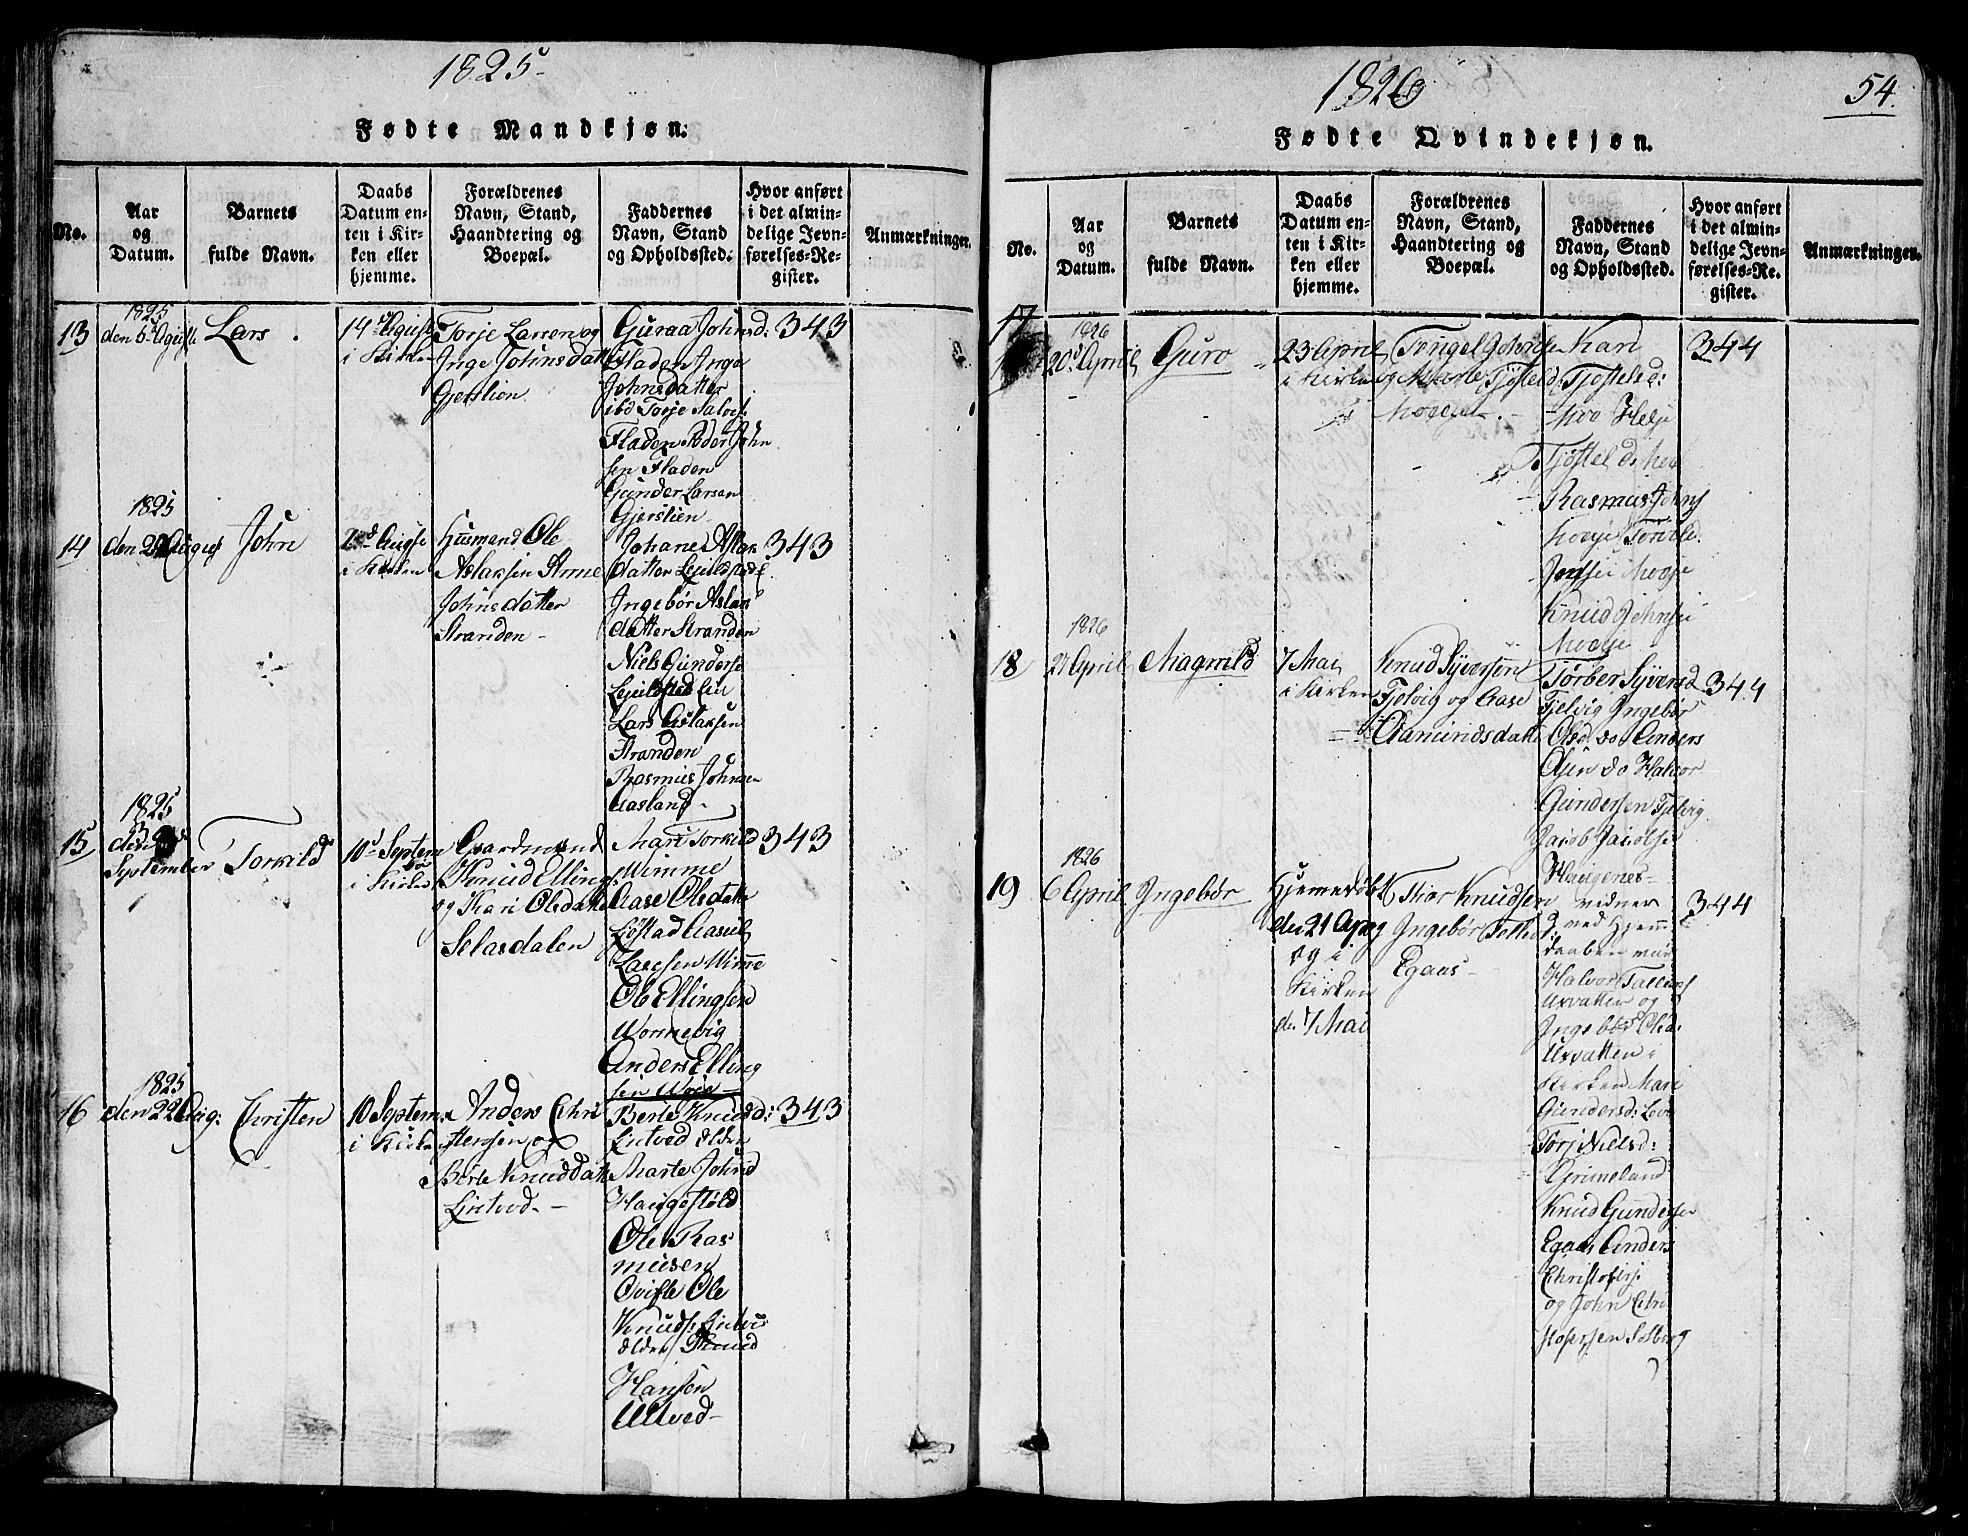 1825
Fødte Mandkjøn.
No.
Aar
og
Datum.
Barnets
fulde Navn.
Daabs
Datum en-
ten i Kir-
ken eller
hjemme.
Forældrenes
Navn, Stand,
Haandtering og
Boepæl.
Faddernes
Navn, Stand
og Opholdssted.
Hvor anført
i det almin-
delige Jevn-
førelses-Re-
gister.
Anmærkninger.
13
1825
Lars
i Kirken
Torje Larsen og
Inge Johnsdatter
Gjerslien
Guraa Johnsd:
Fladen Inge
Johnsdatter
ibd Torje Salves
Fladen Peder John
sen Fladen
Gunder Larsen
Gjerslien
343
14
1825
John
i Kirken
Husmand Ole
Aslaksen Anne
Johnsdatter
Stranden
Johane Aslak
datter
Ingebør Aslak
datter Stranden
Niels Gunderse
Lars Aslaksen
Stranden
Rasmus Johnsen
Aasland
343
15
1825
September
Torkild
10d Septem
i Kirken
Gaardmand
Knud Ellings:
og Kari Olsdatter
Selasdalen
Mari Torkild
Wimme
Aase Olsdatt
Larssen Wimme
Ole Ellingsen
Wonnevig
Anders Elling
sen
343
16
1825
den 22 Aug:
Christen
10 Septem
i Kirken
Anders Chri
stensen og
Berte Knuddatter
Lintved
Berte Knudsd:
Lintved ældre
Marte Johnsd
Haugestøld
Ole Ras
musen
Ole
Knuds Lintve
ældre Knud
Hansen
Ultved
343
1826
54.
Fødte Qvindekjøn.
No.
Aar
og
Datum.
Barnets
fulde Navn.
Daabs
Datum en-
ten i Kir-
ken eller
hjemme.
Forældrenes
Navn, Stand,
Haandtering og
Boepæl.
Faddernes
Navn, Stand
og Opholdssted.
Hvor anført
i det almin-
delige Jevn-
førelses-Re-
gister.
Anmærkninger.
17
1826
20d April
Guro
23 April
i Kirken
Tengel Johnsen
og Marte Tjøstelsd:
Kari
Tjøstelsd:
Moe Helje
Tjøstelsd: Moe
Rasmus Johns
Knud Johnsen
344
18
1826
21 April
Magnild
7 Mai
i Kirken
Knud Syversen
Fjelvig og Aase
Aamundsdatter
Torber Syversd
Fjelvig Ingebør
Olsd do Anders
Olsen do Halvor
Gundersen Fjelvig
Jacob Jacobse
Haugenes
344
19
1826
6 April
Ingebør
Hjemedøbt
den 21 Apr
og i
Kirken
d. 7 Mai
Thor Knudsen
og Ingebør Tollefsd:
Egaas
vidner
ved Hjemme
daaben var
Halvor
Urvatten og
Ingebør Olsd:
Urvatten i
Kirken Mari
Gundersd:
Torje Nielsd:
Grimeland
Knud Gundersen
Egaas Anders
Christofers:
og John Chri
stofersen Solberg
344